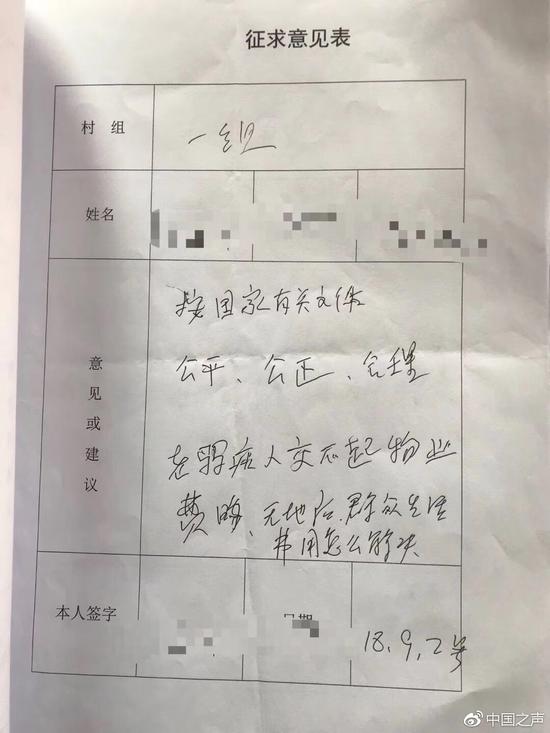 征求意见表
村 组
一组
姓名
意见或建议
按国家有关文件
公平、公正、合理
老弱病人交不起物业
费 无地后.群众生活
费用怎么解决
本人签字
日期
18.9.2号
中国之声